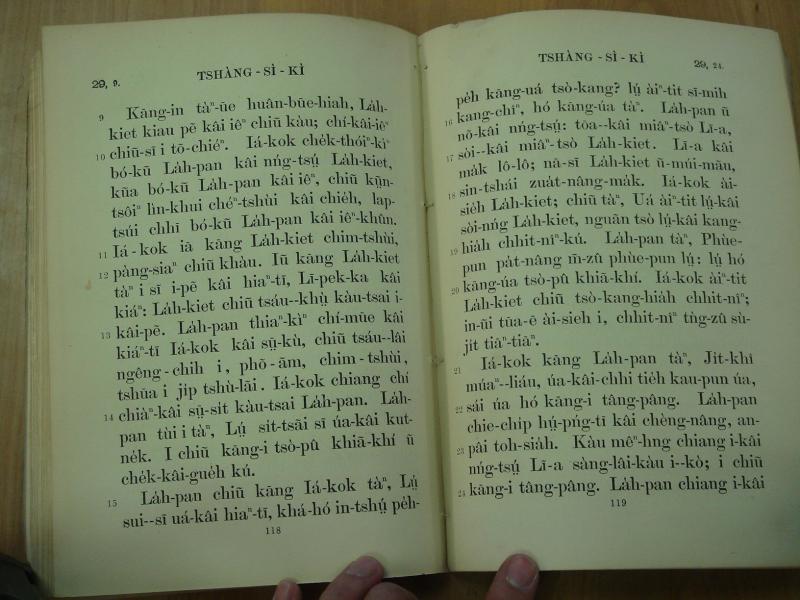 29, 9.
TSHÀNG - SÌ - KÌ
9 Kāng-in tàⁿ-ūe huân-būe-hiah, La̍h-
kiet kiau pĕ kâi iêⁿ chiũ kàu; chí-kâi-iêⁿ
10 chiũ-sĩ i tõ-chiéⁿ. Iá-kok che̍k-thóiⁿ-kìⁿ
bó-kũ La̍h-pan kâi nńg-tsṳ́ La̍h-kiet,
kũa bó-kũ La̍h-pan kâi iêⁿ, chiũ kṳ̃n-
tsôiⁿ lìn-khui chéⁿ-tshùi kâi chie̍h, lap-
tsúi chhī bó-kũ La̍h-pan kâi iêⁿ-khûn.
11 Iá-kok iā kāng La̍h-kiet chim-tshùi,
12 pàng-siaⁿ chiũ khàu. Iũ kāng La̍h-kiet
tàⁿ i sĩ i-pĕ kâi hiaⁿ-tĩ, Lī-pek-ka kâi
kiáⁿ: La̍h-kiet chiũ tsáu--khṳ̀ kàu-tsai i-
13 kâi-pĕ. La̍h-pan thiaⁿ-kìⁿ chí-mūe kâi
kiáⁿ-tĩ Iá-kok kâi sṳ̄-kù, chiũ tsáu--lâi
ngêng-chih i, phõ-ām, chim-tshùi,
tshūa i ji̍p tshù-lāi. Iá-kok chiang chí
14 chiàⁿ-kâi sṳ̄-sit kàu-tsai La̍h-pan. La̍h-
pan tùi i tàⁿ, Lṳ́ sit-tsāi sĩ úa-kâi kut-
ne̍k. I chiũ kāng-i tsò-pû khiā-khí ũ
che̍k-kâi-gue̍h kú.
15 La̍h-pan chiũ kāng Iá-kok tàⁿ, Lṳ́
sui--sĩ uá-kâi hiaⁿ-tĩ, khá-hó in-tshṳ́ pe̍h-
118
TSHÀNG - SÌ - KÌ
29, 24.
pe̍h kāng-uá tsò-kang? lṳ́ àiⁿ-tit sĩ-mih
16 kang-chîⁿ, hó kāng-úa tàⁿ. La̍h-pan ũ
nõ-kâi nńg-tsṳ́: tōa--kâi miâⁿ-tsò Lī-a,
17 sòi--kâi miâⁿ-tsò La̍h-kiet. Lī-a kâi
ma̍k lô-lô; nā-sĩ La̍h-kiet ũ-múi-māu,
18 sin-tshái zua̍t-nâng-ma̍k. Iá-kok ài-
sieh La̍h-kiet; chiũ tàⁿ, Uá àiⁿ-tit lṳ́-kâi
sòi-nńg La̍h-kiet, nguān tsò lṳ́-kâi kang-
19 hia̍h chhit-nîⁿ-kú. La̍h-pan tàⁿ, Phùe-
pun pa̍t-nâng m̄-zû phùe-pun lṳ́: lṳ́ hó
20 kāng-úa tsò-pû khiā-khí. Iá-kok àiⁿ-tit
La̍h-kiet chiũ tsò-kang-hia̍h chhit-nîⁿ;
in-ūi tūa-ē ài-sieh i, chhit-nîⁿ tǹg-zû sù-
ji̍t tiāⁿ-tiāⁿ.
21 Iá-kok kāng La̍h-pan tàⁿ, Ji̍t-khî
múaⁿ--liáu, úa-kâi-chhi tie̍h kau-pun úa,
22 sái úa hó kāng-i tâng-pâng. La̍h-pan
chie-chi̍p hṳ́-pṳ̄ng-tī kâi chèng-nâng, an-
23 pâi toh-sia̍h. Kàu mêⁿ-hng chiang i-kâi
nńg-tsṳ́ Lī-a sàng-lâi-kàu i--kò; i chiũ
24 kāng-i tâng-pâng. La̍h-pan chiang i-kâi
119